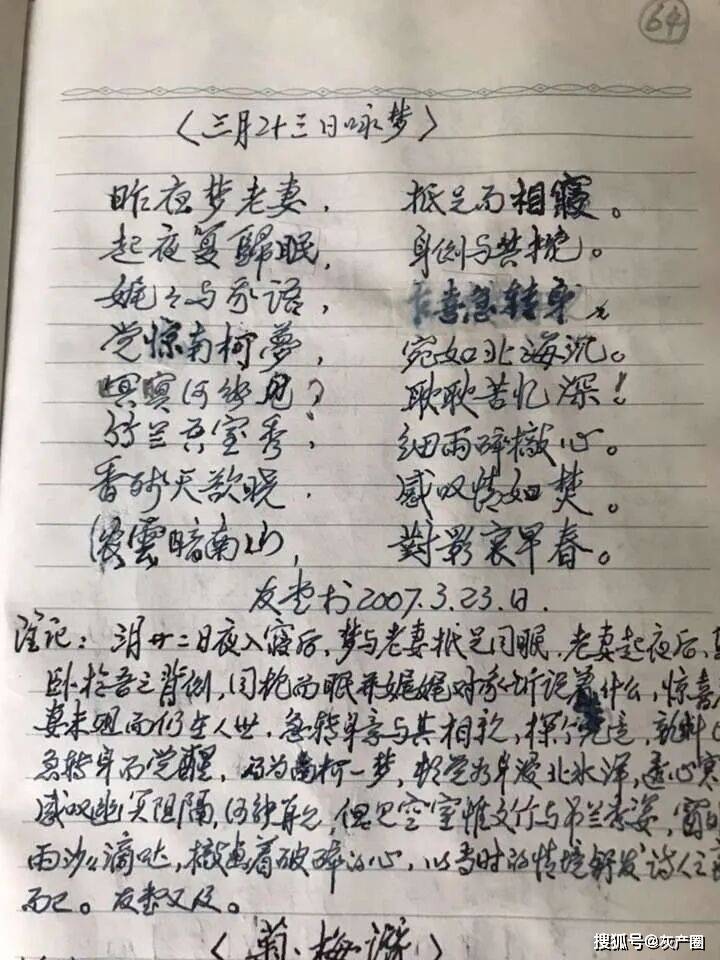 64
〈三月二十三日咏梦〉
昨夜梦老妻, 抵足而相寢。
起夜复歸眠, 身倒与共枕。
娓々与我语, 喜急转身
觉惊南柯夢, 宛如北海沉。
暝冥何能见? 耿耿苦忆深!
竹兰吾室秀; 细雨碎撤心。
香残天欲晓. 感叹情如焚。
浓雲暗南山, 對影哀早春。
友堂书2007.3.23.日.
注记: 三月廿二日夜入寝后, 梦与老妻抵足同眠. 老妻起夜后,
卧於吾之背侧, 同枕而眠并娓娓对我诉说着什么, 惊喜
妻未殂而仍生人世. 急转身亲与其相 , 探个究竟,
急转身而觉醒, 乃为南柯一梦, 顿觉 身浸北冰洋, 透心寒
感叹幽冥阻隔, 何能再见, 但见空室惟文竹与吊兰秀姿, 窗
雨沙々滴哒, 撤 着破碎的心, 以当时的情境舒发诗人之
而已。友堂又及。
〈菊·梅
搜狐号@灰产圈